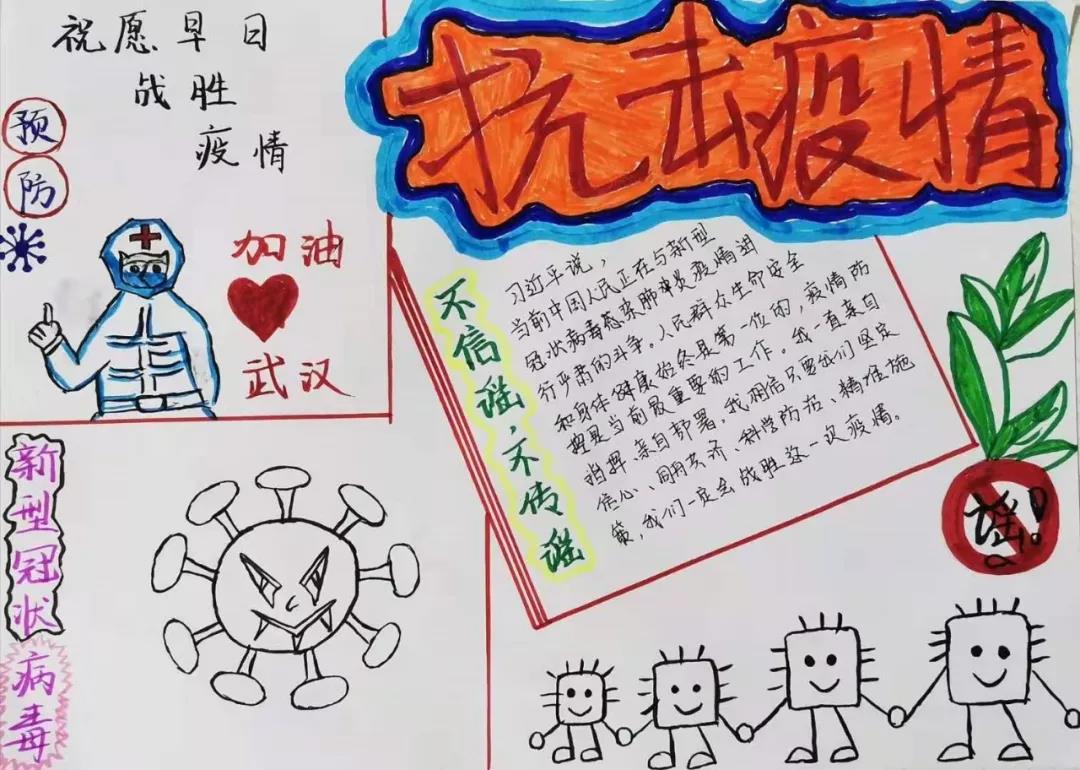 祝愿早日
战胜
疫情
预
防
加油
武汉
抗击疫情
不信谣，不传谣
习近平说，
当前中国人民正在与新型
冠状病毒感染肺炎疫情进
行严肃的斗争。人民群众生命安全
和身体健康始终是第一位的，疫情防
控是当前最重要的工作。我一直亲自
指挥、亲自部署。我相信只要我们坚定
信心、同舟共济、科学防治、精准施
策，我们一定会战胜这一次疫情。
谣！
新型冠状
病毒